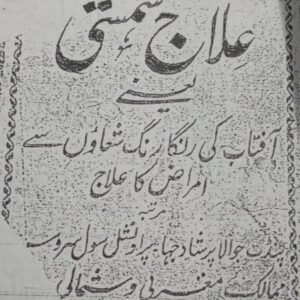 علاج شمسی
یعنے
آفتاب کی رنگا رنگ شعاؤں سے
امراض کا علاج
مرتبہ
پنڈت جوالا پرشاد جہا پراونشل سول سروس
ممالک مغربی وشمالی